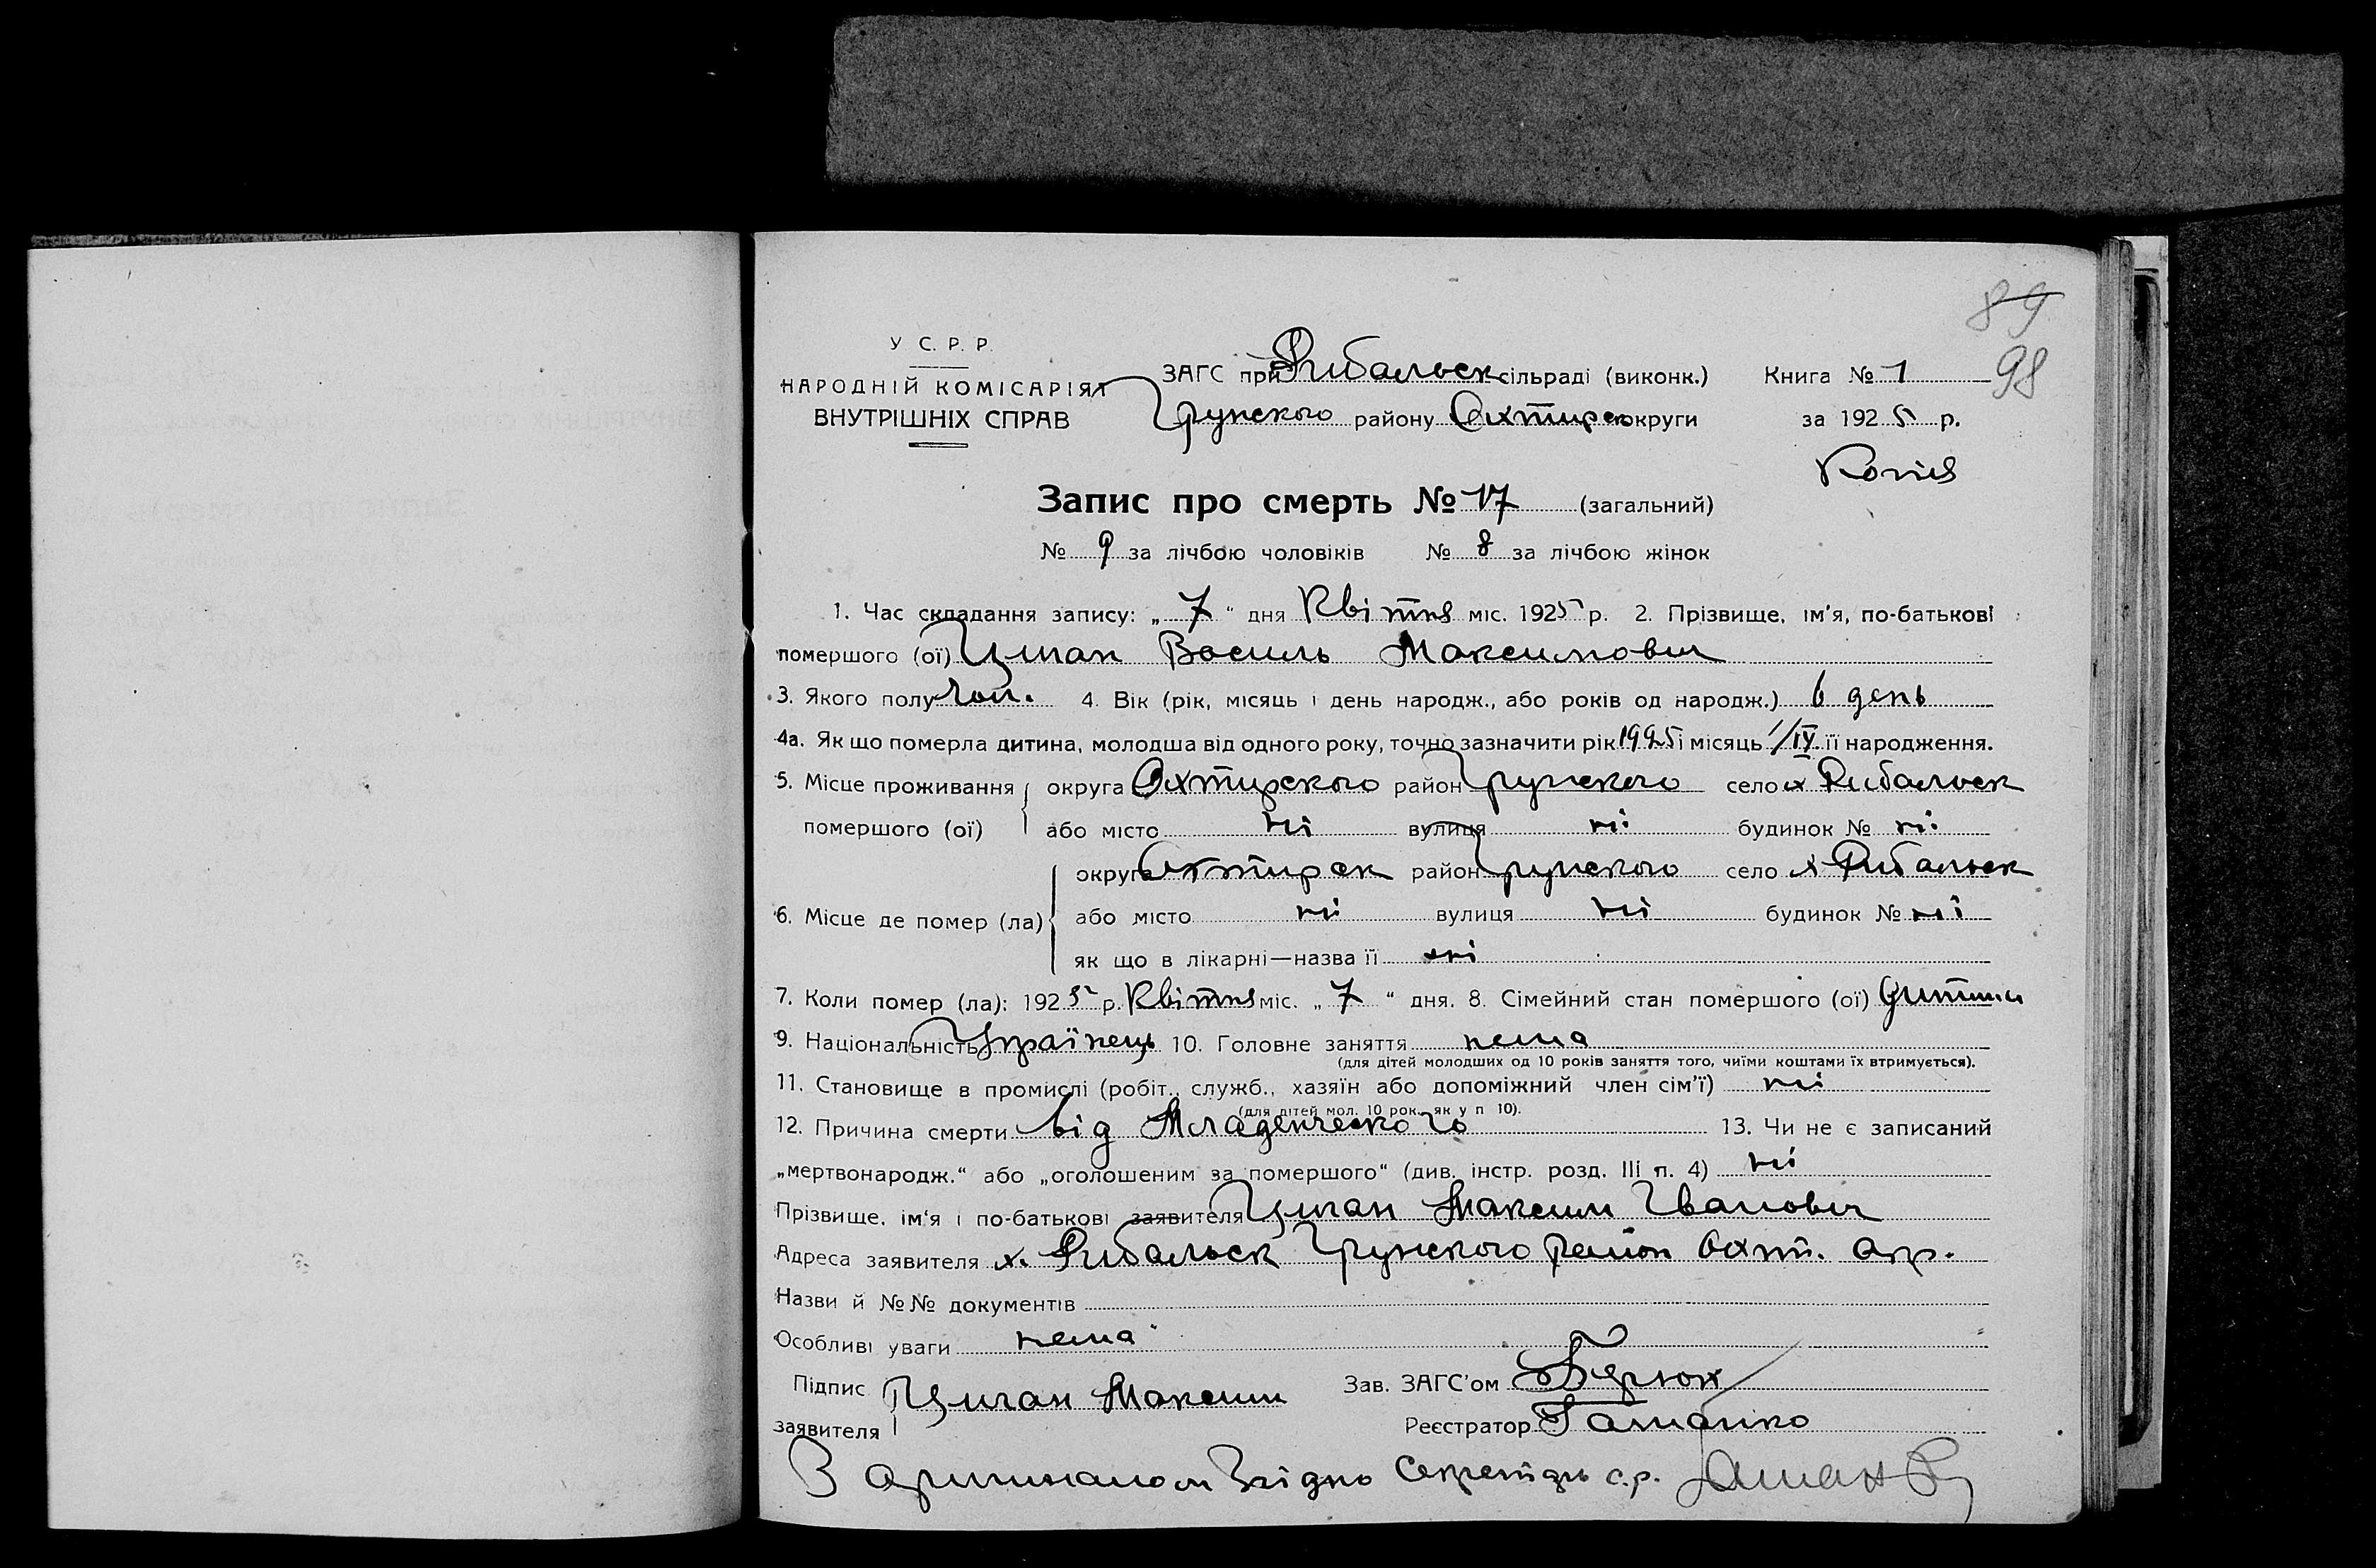 89
98
У С. Р. Р.
НАРОДНІЙ КОМІСАРІЯТ
ВНУТРІШНІХ СПРАВ
ЗАГС при Рибальск сільраді (виконк.) Книга № 1
Грунского району Охтирск округи за 1925 р.
Копія
Запис про смерть № 17 (загальний)
№ 9 за лічбою чоловіків № 8 за лічбою жінок
1. Час складання запису: „ 7 “ дня Квітня міс. 1925 р. 2. Прізвище, ім'я, по-батькові
помершого (ої) Циган Василь Максимович
3. Якого полу чол. 4. Вік (рік, місяць і день народж., або років од народж.) 6 день
4а. Як що померла дитина, молодша від одного року, точно зазначити рік 1925 і місяць 1/IV. її народження.
5. Місце проживання округа Охтирского район Грунского село х Рибальск
помершого (ої) або місто ні вулиця ні будинок № ні
округа Охтирск район Грунского село х Рибальск
6. Місце де помер (ла) або місто ні вулиця ні будинок № ні
як що в лікарні—назва її ні
7. Коли помер (ла): 1925 р. Квітня міс. „ 7 “ дня. 8. Сімейний стан помершого (ої) дитина
9. Національність Українець 10. Головне заняття нема
(для дітей молодших од 10 років заняття того, чиїми коштами їх втримується).
11. Становище в промислі (робіт., служб., хазяїн або допоміжний член сім'ї) ні
(для дітей мол. 10 рок. як у п 10).
12. Причина смерти від Младенческого 13. Чи не є записаний
„мертвонародж.“ або „оголошеним за помершого“ (див. інстр. розд. III п. 4) ні
Прізвище, ім'я і по-батькові заявителя Циган Максим Іванович
Адреса заявителя х. Рибальск Грунского район Охт. окр.
Назви й №№ документів
Особливі уваги нема
Підпис Циган Максим Зав. ЗАГС'ом
заявителя Реєстратор
З оригиналом Згідно Секретарь с.р.